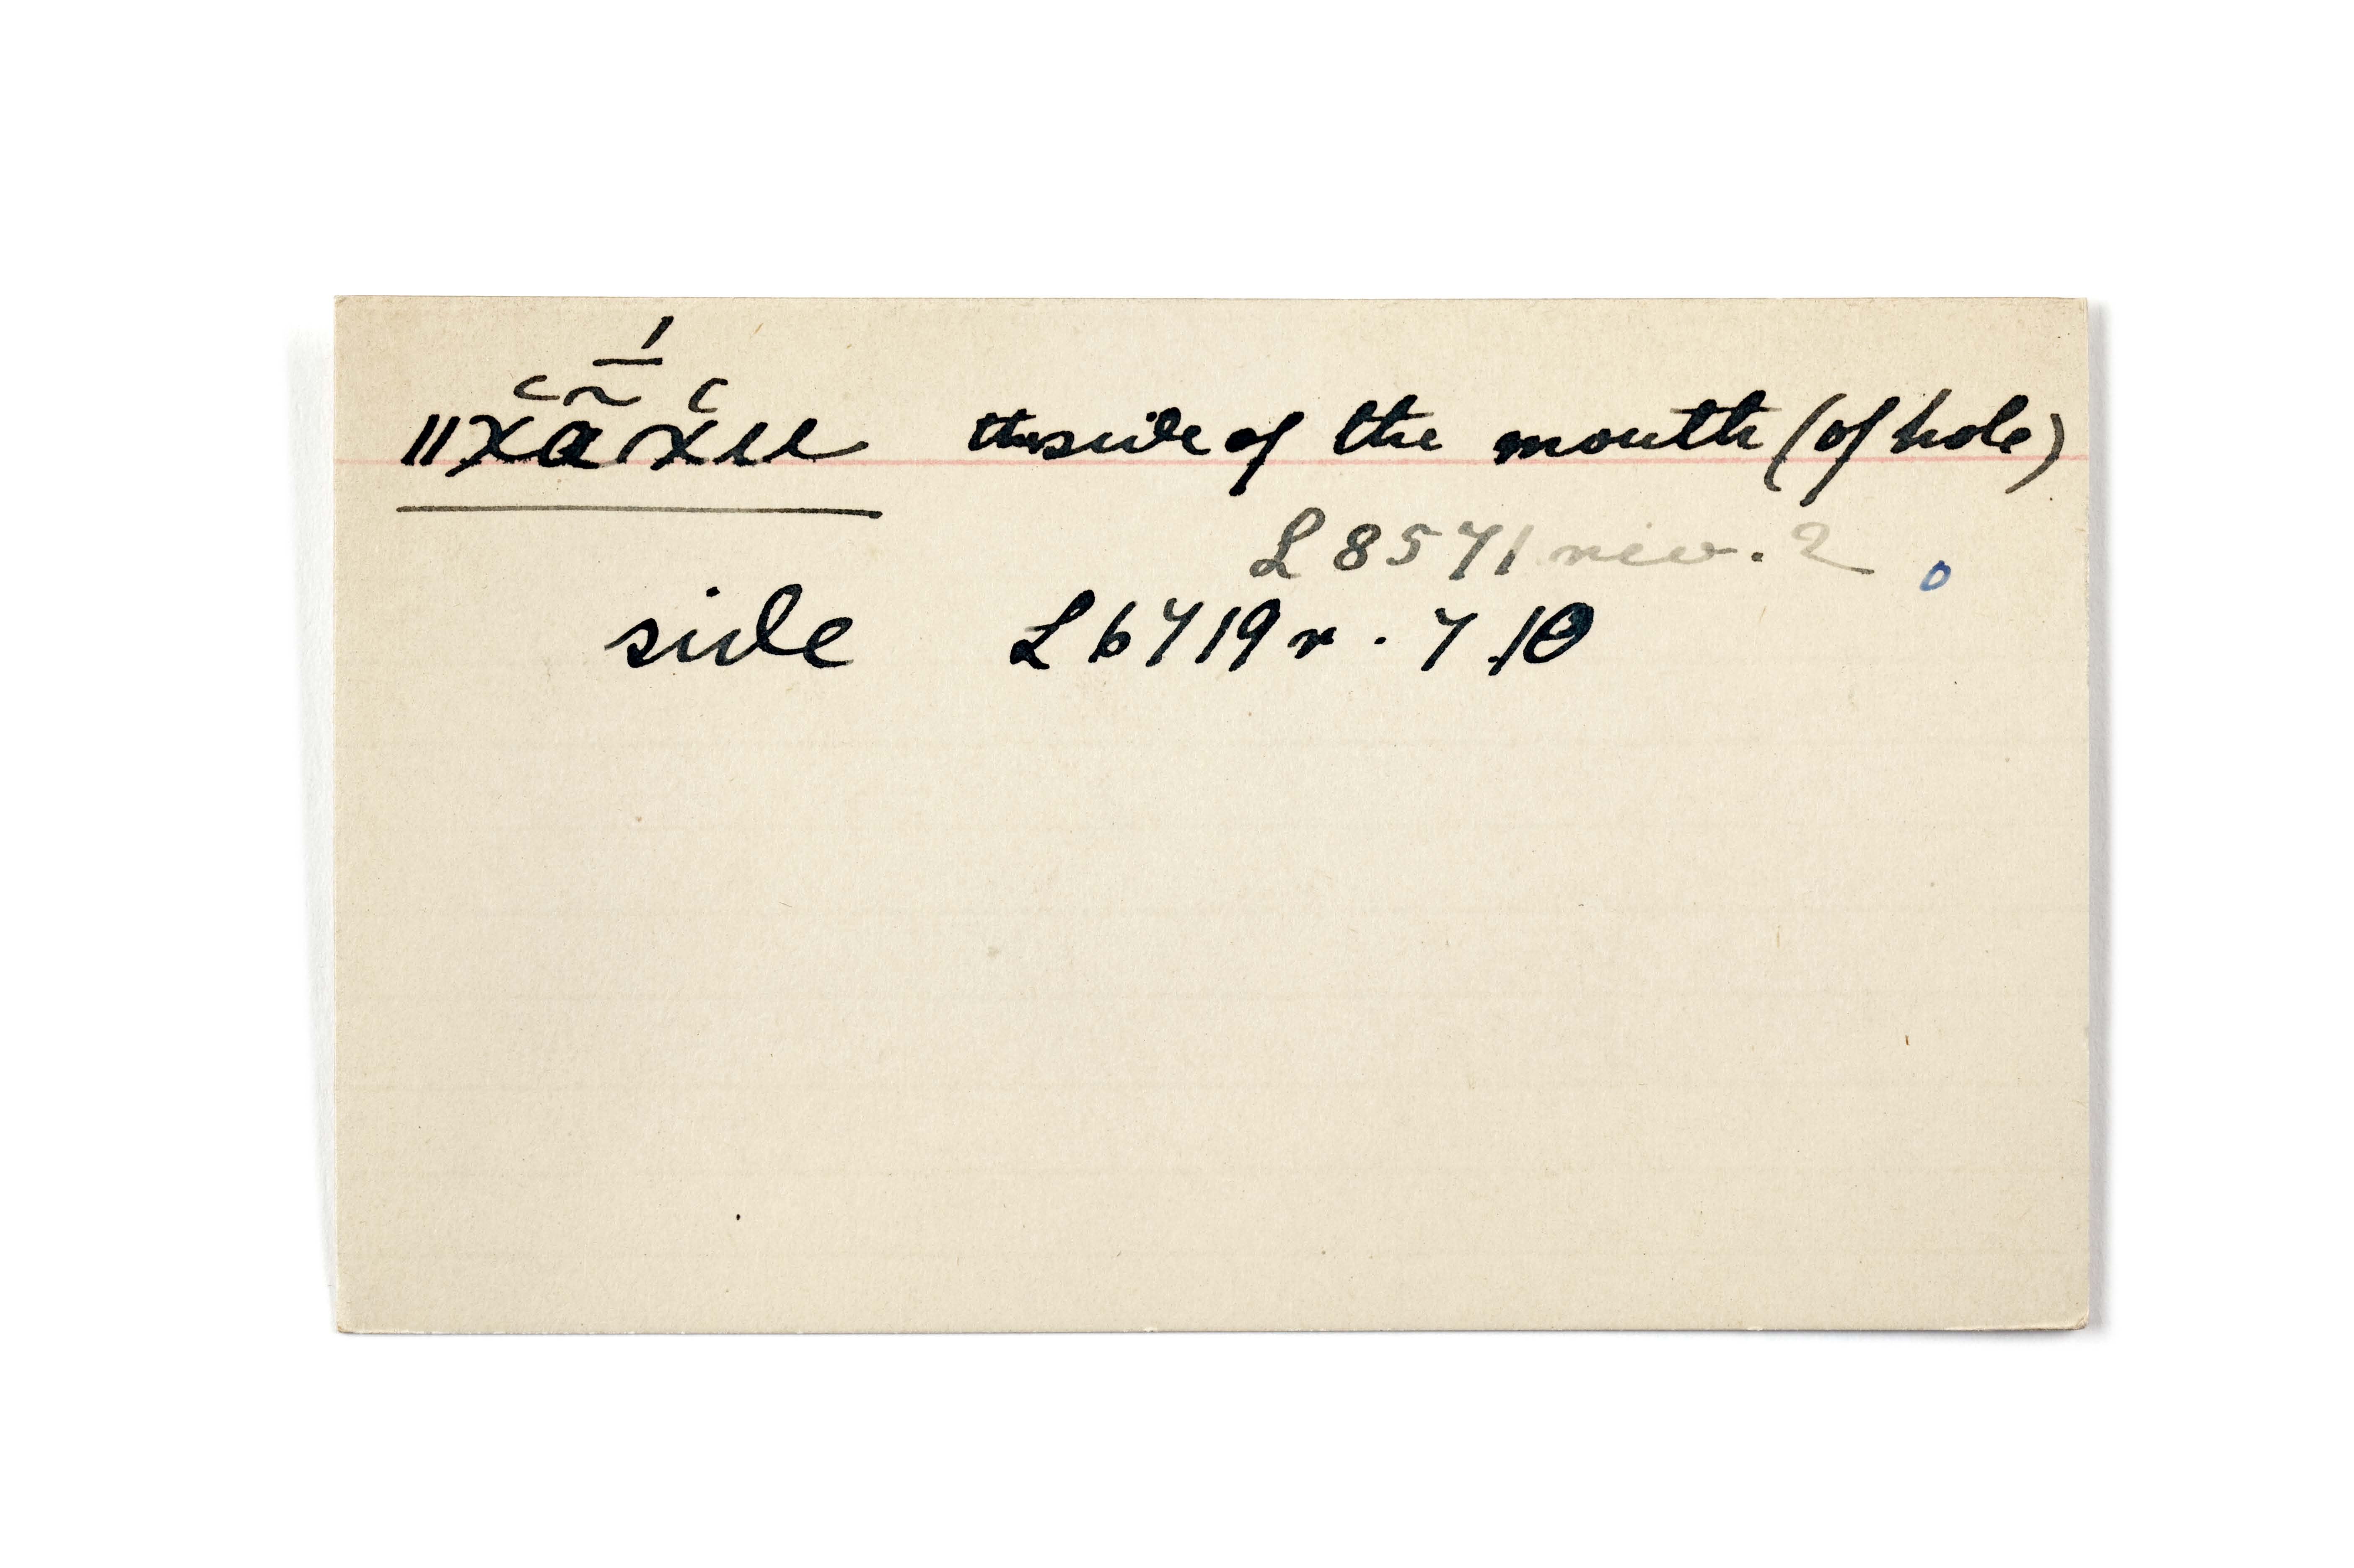 ǁx̆ã̄́x̆u the side of the mouth (of hole)
L 8571 rev. 2
side L 6719 r. 7 10